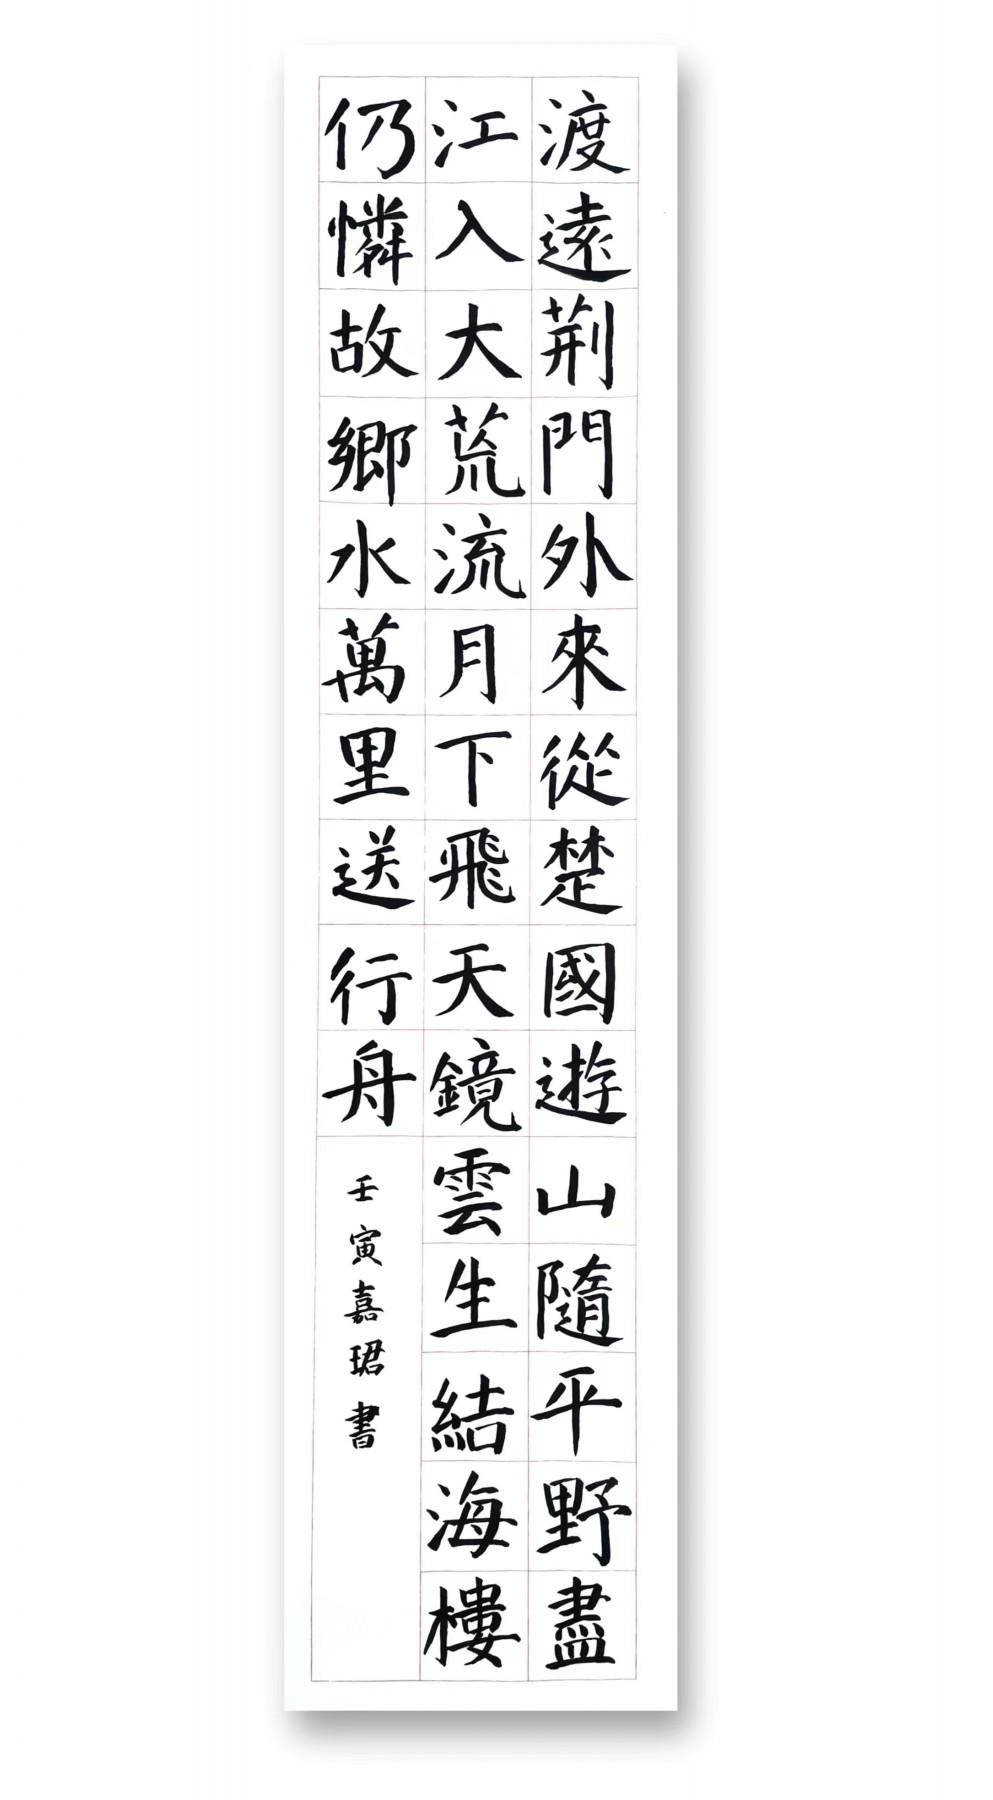 渡遠荊門外來從楚國遊山隨平野盡
江入大荒流月下飛天鏡雲生結海樓
仍憐故鄉水萬里送行舟
壬寅嘉珺書